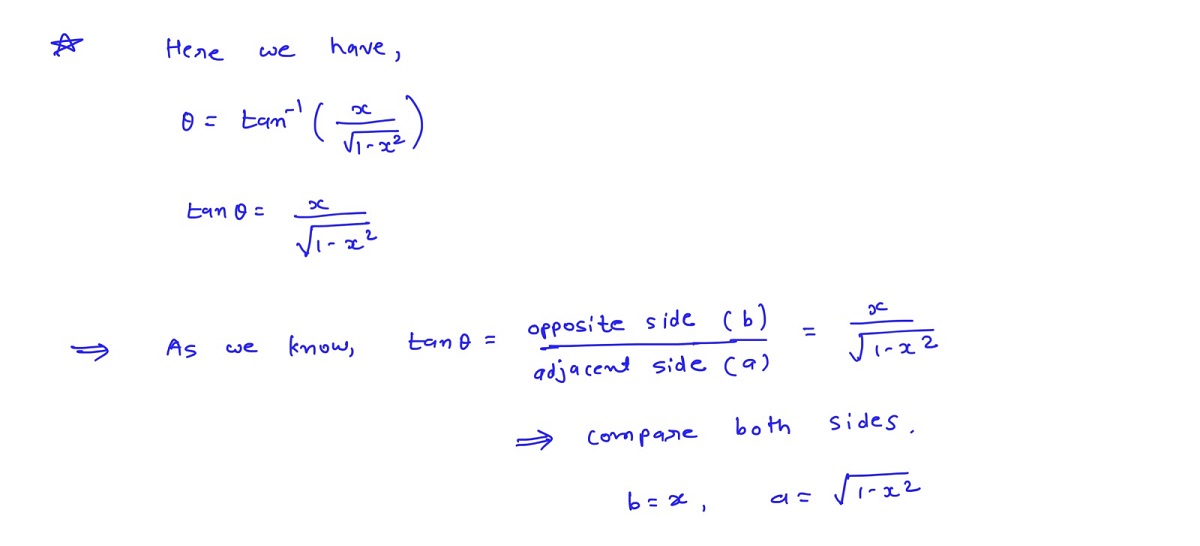 ☆ Here we have,
θ = tan⁻¹ ( x / √(1-x²) )
tan θ = x / √(1-x²)
⇒ As we know, tan θ = opposite side (b) / adjacent side (a) = x / √(1-x²)
⇒ compare both sides.
b = x, a = √(1-x²)